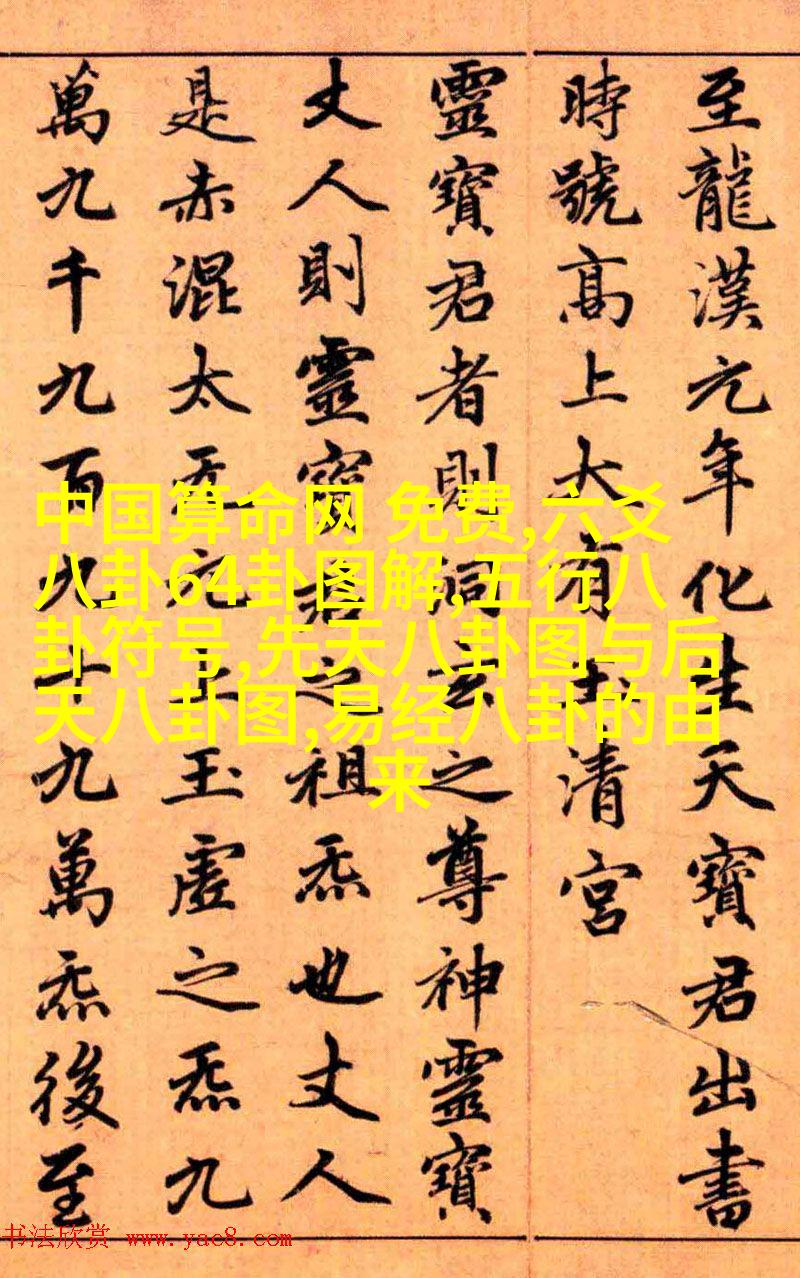 至龍漢元年化生天寶君出書
時號高上大有玉清宮
靈寶君者則洞玄之尊神靈寶
丈人則靈寶君之祖炁也丈人
是赤混太无元上玉虛之炁九
萬九千九百九十九萬炁後至
中国算命网 免费,六爻
八卦64卦图解,五行八
卦符号,先天八卦图与后
天八卦图,易经八卦的由
来
书法欣赏 www.yac8.com